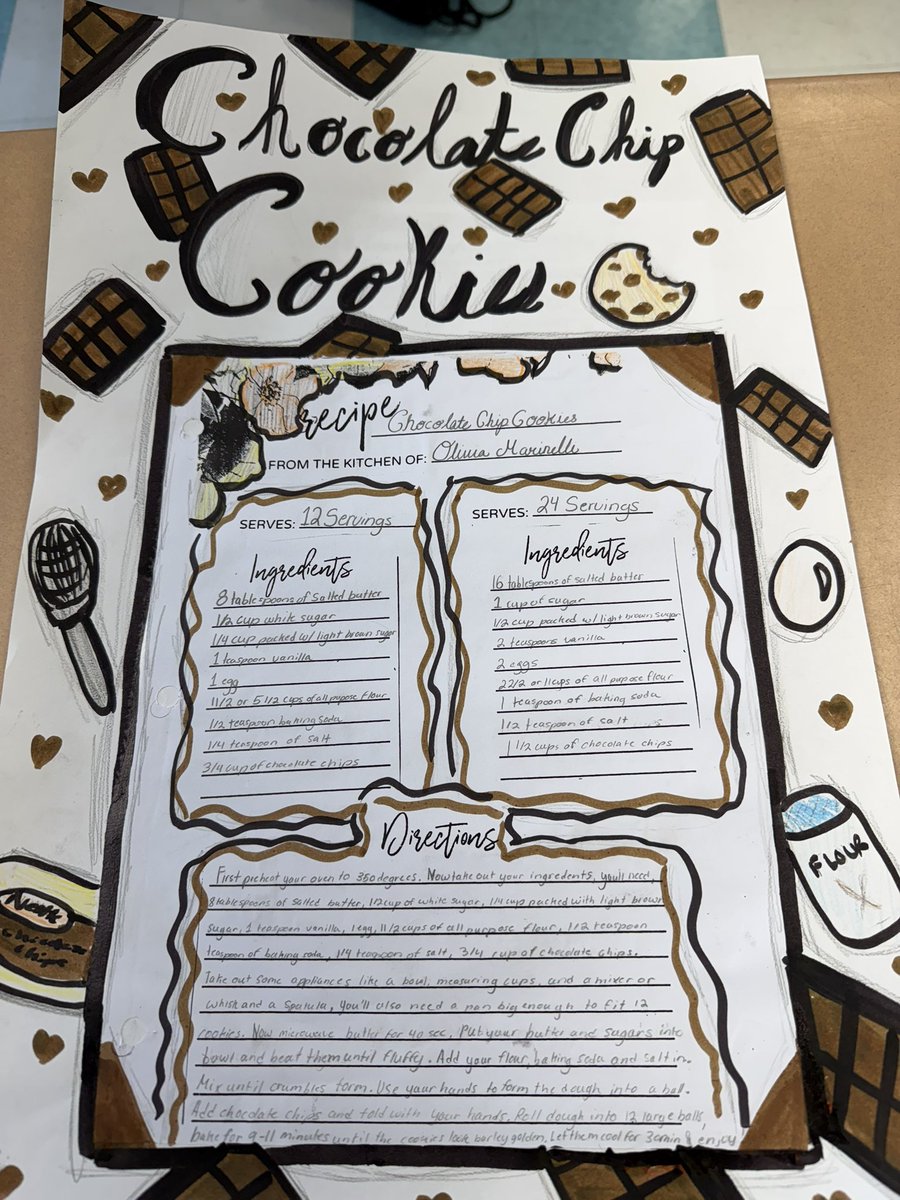 Chocolate Chip
Cookies
recipe Chocolate Chip Cookies
FROM THE KITCHEN OF: Olivia Marinelli
SERVES: 12 Servings
Ingredients
8 tablespoons of salted butter
1/2 cup white sugar
1/4 cup packed w/ light brown sugar
1 teaspoon vanilla
1 egg
11/2 or 5 1/2 cups of all purpose flour
1/2 teaspoon baking soda
1/4 teaspoon of salt
3/4 cup of chocolate chips
SERVES: 24 Servings
Ingredients
16 tablespoons of salted butter
1 cup of sugar
1/2 cup packed w/ light brown sugar
2 teaspoons vanilla
2 eggs
22/2 or 11cups of all purpose flour
1 teaspoon of baking soda
1/2 teaspoon of salt
1 1/2 cups of chocolate chips
Directions
First preheat your oven to 350 degrees. Now take out your ingredents, you'll need,
8 tablespoons of salted butter, 1/2 cup of white sugar, 1/4 cup packed with light brown
sugar, 1 teaspoon vanilla, 1 egg, 11/2 cups of all purpose flour, 1/2 teaspoon
teaspoon of baking soda, 1/4 teaspoon of salt, 3/4 cup of chocolate chips.
Take out some appliances like a bowl, measuring cups, and a mixer or
whisk and a spatula, you'll also need a pan big enough to fit 12
cookies. Now microwave butter for 40 sec. Put your butter and sugars into
bowl and beat them until fluffy. Add your flour, baking soda and salt in.
Mix until crumbles form. Use your hands to form the dough into a ball.
Add chocolate chips and fold with your hands, Roll dough into 12 large balls,
bake for 9-11 minutes until the cookies look barley golden, Let them cool for 30min & enjoy
FLOUR
Chips